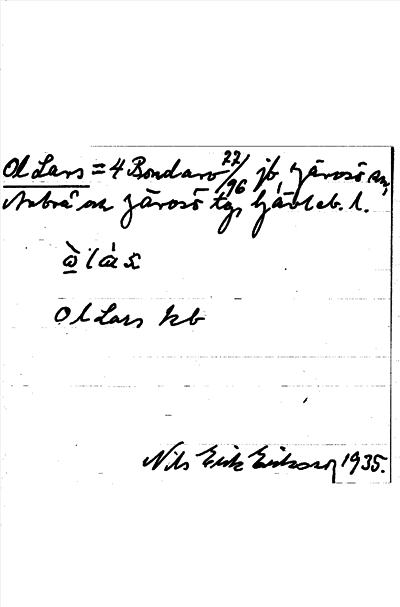 Ol Lars = 4 Bondarv 22/96 jb, Järvsö sn,
Arbrå och Järvsö tg, Gävleb. l.
Ol Lars kb
Nils Erik Eriksson 1935.